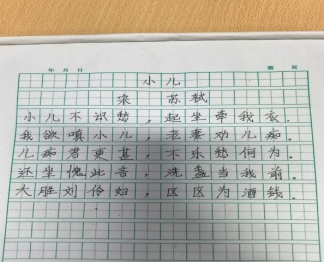 年 月 日 第 页
小儿
宋 苏轼
小儿不识愁，起坐牵我衣。
我欲嗔小儿，老妻劝儿痴。
儿痴君更甚，不乐愁何为。
还坐愧此言，洗盏当我前。
大胜刘伶妇，区区为酒钱。